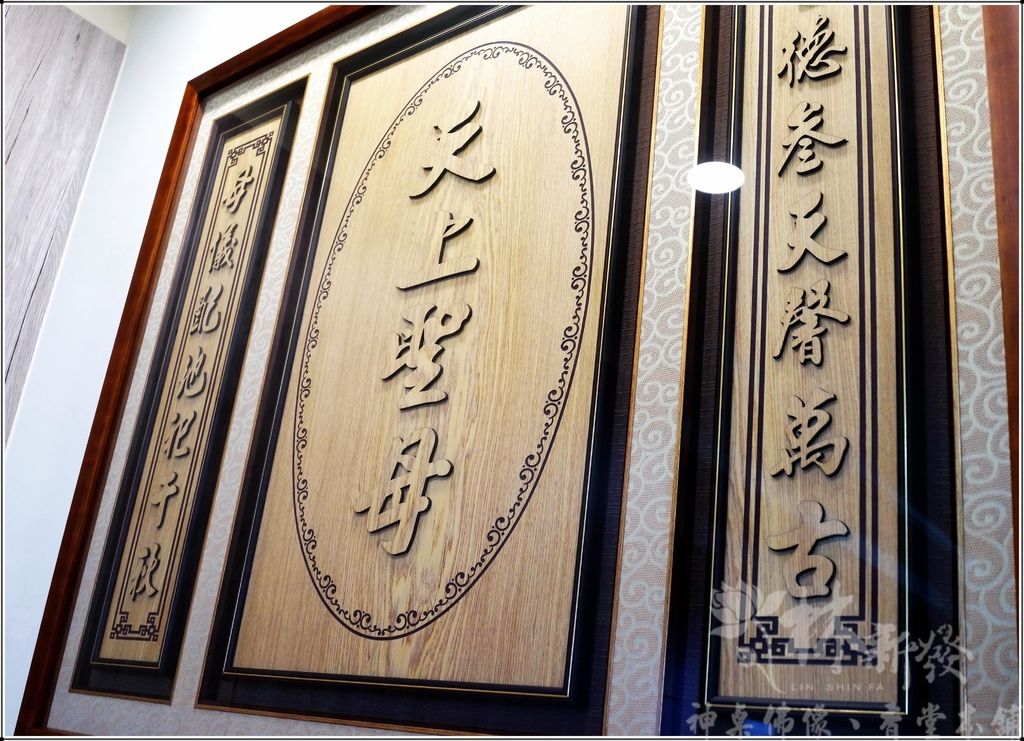 德參天聲萬古
天上聖母
母儀配地祀千秋
林新發
LIN SHIN FA
神桌佛像、香堂本舖